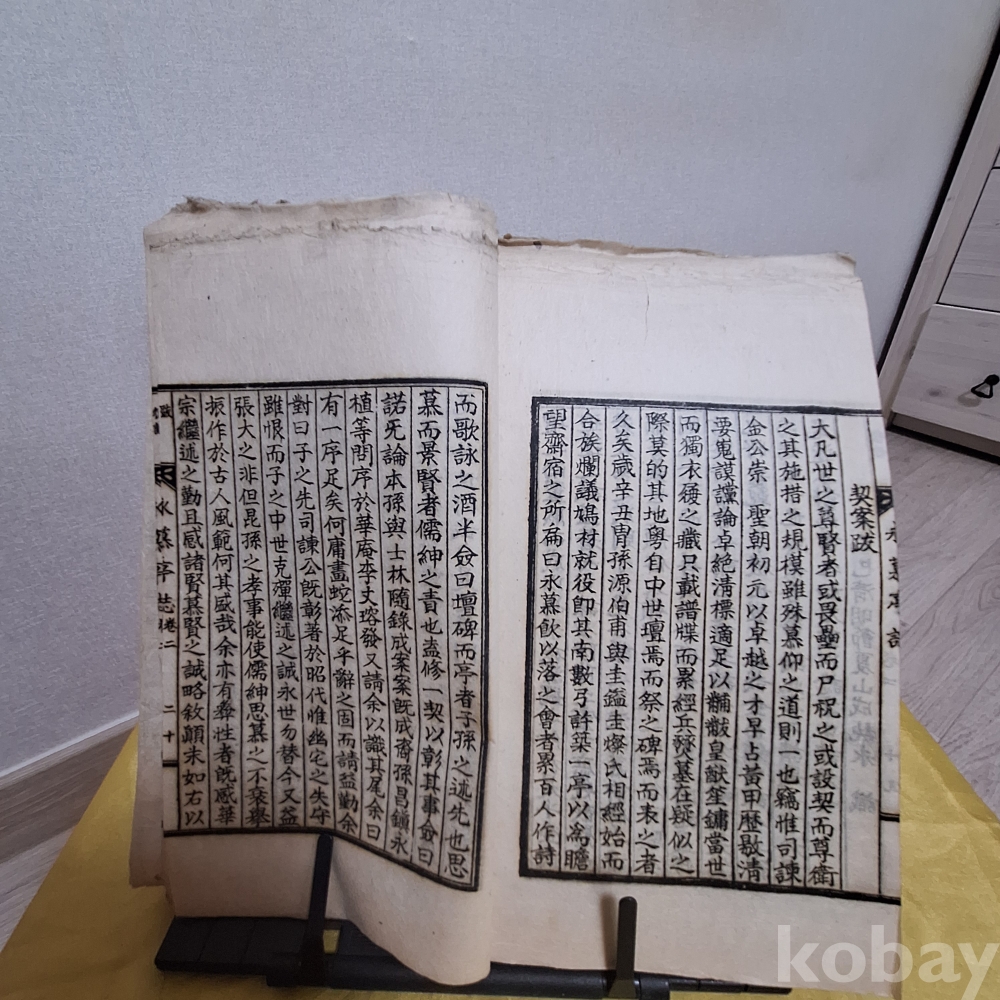 契案跋
大凡世之尊賢者或畏壘而尸祝之或設契而尊衛
之其施措之規模雖殊慕仰之道則一也竊惟司諫
金公崇 聖朝初元以卓越之才早占黃甲歷敭清
要嵬謨讜論卓絶清標適足以黼黻皇猷笙鏞當世
而獨衣履之藏只載譜牒而累經兵燹墓在疑似之
際莫的其地粤自中世壇焉而祭之碑焉而表之者
久矣歲辛丑胄孫源伯甫與圭鑑圭燦氏相經始而
合族爛議鳩材就役卽其南數弓許築一亭以爲瞻
望齋宿之所扁曰永慕飮以落之會者累百人作詩
而歌詠之酒半僉曰壇碑而亭者子孫之述先也思
慕而景賢者儒紳之責也盍修一契以彰其事僉曰
諾旡論本孫與士林隨錄成案案旣成裔孫昌鎖永
植等問序於華庵李丈瑢發又請余以識其尾余曰
有一序足矣何庸畫蛇添足乎辭之固而請益勤余
對曰子之先司諫公旣彰著於昭代惟幽宅之失守
雖恨而子之中世克殫繼述之誠永世勿替今又益
張大之非但昆孫之孝事能使儒紳思慕之不衰擧
振作於古人風範何其盛哉余亦有彝性者旣感華
宗繼述之勤且感諸賢慕賢之誠略敘顚末如右以
永慕亭誌 卷之二 二十
kobay